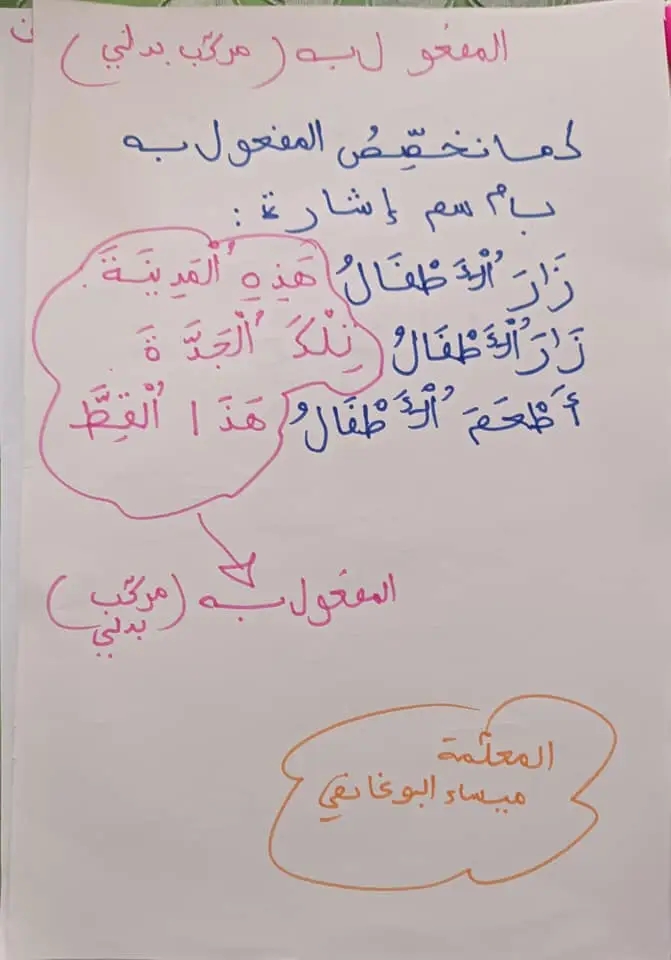 المفعول به (مركب بدلي)
كما نخصِّصُ المفعول به
باسم إشارة :
زَارَ ٱلْأَطْفَالُ هَذِهِ ٱلْمَدِينَةَ.
زَارَ ٱلْأَطْفَالُ تِلْكَ ٱلْجَدَّةَ
أَطْعَمَ ٱلْأَطْفَالُ هَذَا ٱلْقِطَّ
المفعول به (مركب بدلي)
المعلّمة
ميساء البوغانمي